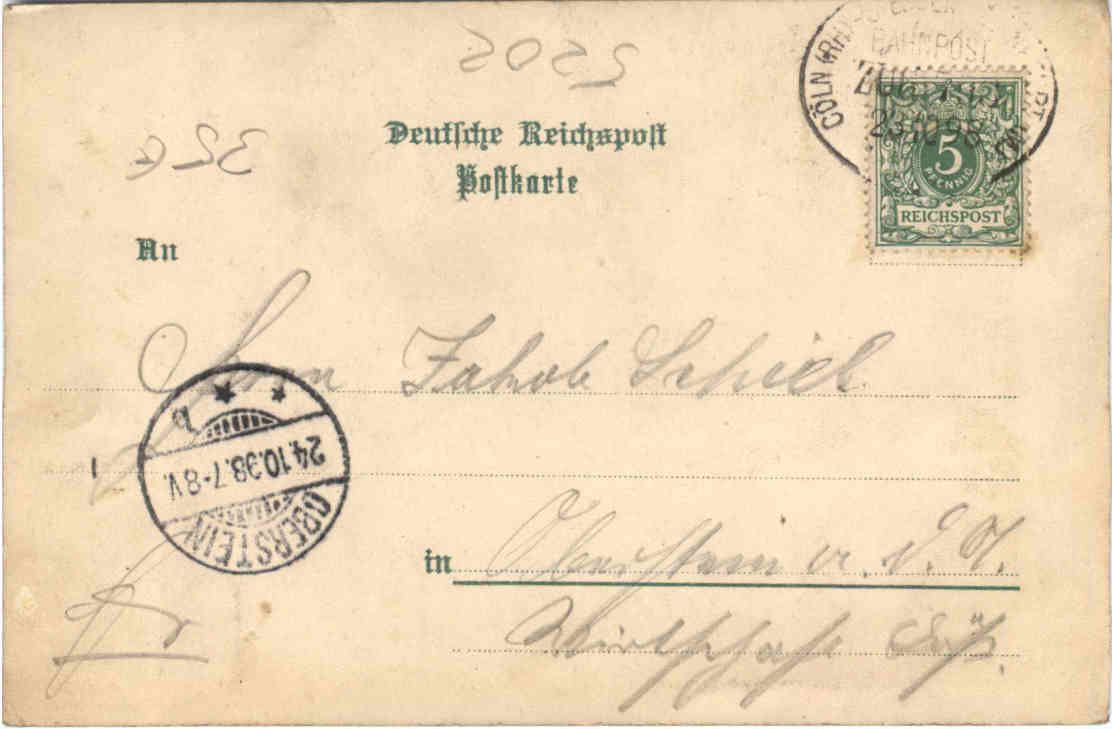 5202
35 €
Deutsche Reichspost
Postkarte
CÖLN (RH)
BAHNPOST
ZUG
23.10.98
5
PFENNIG
REICHSPOST
An
Herrn Jakob Schiel
24.10.98.7-8V.
OBERSTEIN
in Oberstein a. d. N.
Wirthschaft